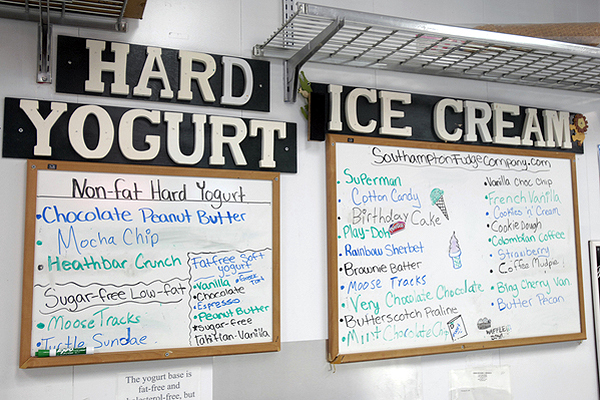 HARD
YOGURT
Non-fat Hard Yogurt
•Chocolate Peanut Butter
•Mocha Chip
•Heathbar Crunch
Sugar-free Low-fat
•Moose Tracks
•Turtle Sundae
Fat-free Soft
yogurt
•Vanilla
•Chocolate
•Espresso
•Peanut Butter
•Sugar-free
Tahitian-Vanilla
ICE CREAM
SouthamptonFudgeCompany.com
•Superman
•Cotton Candy
•Birthday Cake
•Play-Doh
•Rainbow Sherbet
•Brownie Batter
•Moose Tracks
•Very Chocolate Chocolate
•Butterscotch Praline
•Mint Chocolate Chip
•Vanilla Choc Chip
•French Vanilla
•Cookies 'n' Cream
•Cookie Dough
•Colombian Coffee
•Strawberry
•Coffee Mudpie
•Bing Cherry Van.
•Butter Pecan
WAFFLE
BOWL
The yogurt base is
fat-free and
cholesterol-free, but